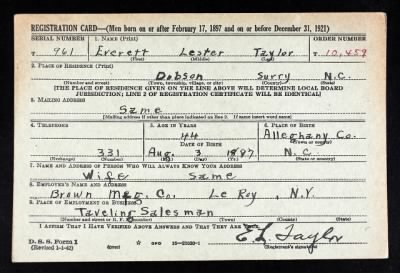 REGISTRATION CARD—(Men born on or after February 17, 1897 and on or before December 31, 1921)
SERIAL NUMBER 1. NAME (Print) ORDER NUMBER
T 961 Everett Lester Taylor T 10,459
(First) (Middle) (Last)
2. PLACE OF RESIDENCE (Print)
Dobson Surry N.C.
(Number and street) (Town, township, village, or city) (County) (State)
[THE PLACE OF RESIDENCE GIVEN ON THE LINE ABOVE WILL DETERMINE LOCAL BOARD
JURISDICTION; LINE 2 OF REGISTRATION CERTIFICATE WILL BE IDENTICAL]
3. MAILING ADDRESS
Same
[Mailing address if other than place indicated on line 2. If same insert word same]
4. TELEPHONE 5. AGE IN YEARS 6. PLACE OF BIRTH
44 Alleghany Co.
DATE OF BIRTH (Town or county)
331 Aug. 3 1897 N.C.
(Exchange) (Number) (Mo.) (Day) (Yr.) (State or country)
7. NAME AND ADDRESS OF PERSON WHO WILL ALWAYS KNOW YOUR ADDRESS
Wife Same
8. EMPLOYER'S NAME AND ADDRESS
Brown Mfg. Co. Le Roy, N.Y.
9. PLACE OF EMPLOYMENT OR BUSINESS
Taveling Salesman
(Number and street or R. F. D. number) (Town) (County) (State)
I AFFIRM THAT I HAVE VERIFIED ABOVE ANSWERS AND THAT THEY ARE TRUE.
D. S. S. Form 1 (over) GPO E L Taylor
(Revised 1-1-42) (Registrant's signature)